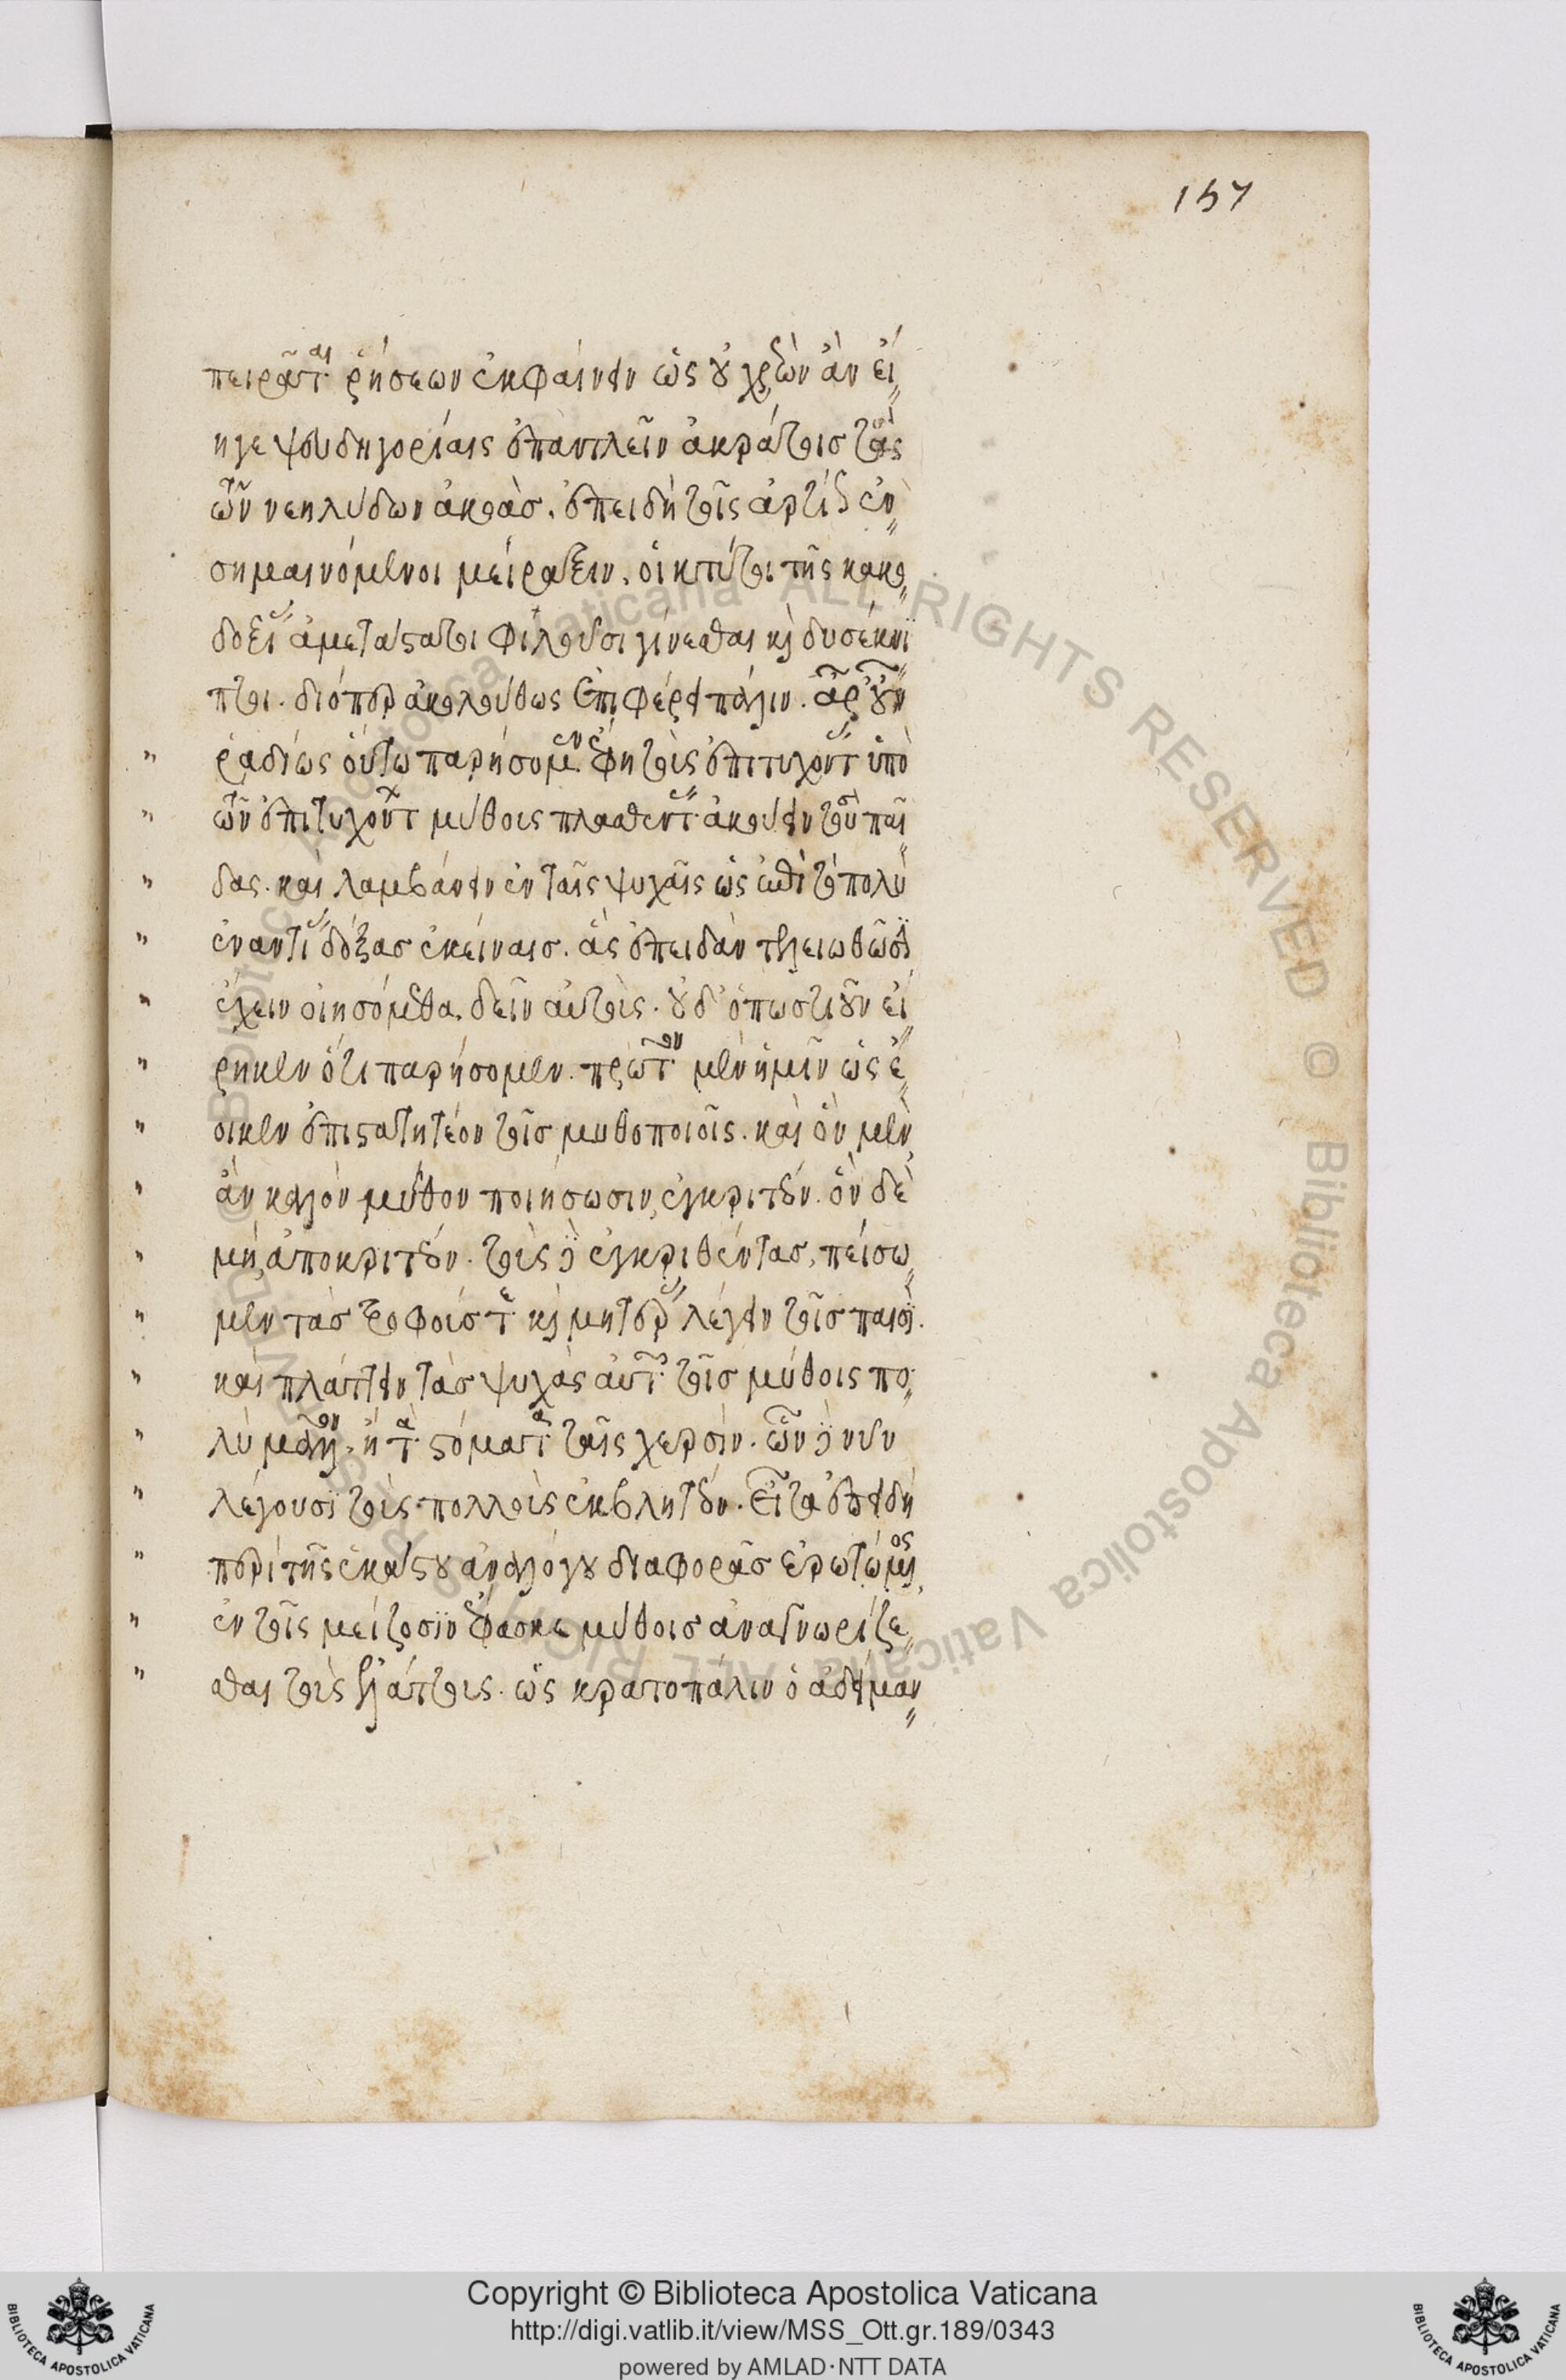 157
πειρᾶται ῥήσεων ἐκφαίνειν ὡς οὐ χρεὼν ἂν εἴ
η γε ψευδηγορίαις ἐπαντλεῖν ἀκράτοις τὰς
τῶν νεηλύδων ἀκοάς. ἐπειδὴ τοῖς ἄρτι
σημαινόμενοι μείραξιν. οἱ τῆς κακο
δοξίας ἀμετάστατοι φιλοῦσι γίνεσθαι καὶ δυσέκνι
πτοι. διόπερ ἀκολούθως ἐπιφέρει πάλιν. ἆρ' οὖν
ῥαδίως οὕτω παρήσομεν ἔφη τοὺς ἐπιτυχόντας ὑπὸ
τῶν ἐπιτυχόντων μύθους πλασθέντας ἀκούειν τοὺς παῖ
δας. καὶ λαμβάνειν ἐν ταῖς ψυχαῖς ὡς ἐπὶ τὸ πολὺ
ἐναντίας δόξας ἐκείναις. ἃς ἐπειδὰν τελειωθῶσιν
ἔχειν οἰησόμεθα. δεῖν αὐτούς. οὐδ' ὁπωστιοῦν εἴ
ρηκεν ὅτι παρήσομεν. πρῶτον μὲν ἡμῖν ὡς ἔ
οικεν ἐπιστατητέον τοῖς μυθοποιοῖς. καὶ ὃν μὲν
ἂν καλὸν μῦθον ποιήσωσιν, ἐγκριτέον. ὃν δὲ
μὴ, ἀποκριτέον. τοὺς δὲ ἐγκριθέντας, πείσω
μεν τὰς τροφούς τε καὶ μητέρας λέγειν τοῖς παισί.
καὶ πλάττειν τὰς ψυχὰς αὐτῶν τοῖς μύθοις πο
λὺ μᾶλλον. ἢ τὰ σώματα ταῖς χερσίν. ὧν δὲ νῦν
λέγουσι τοὺς πολλοὺς ἐκβλητέον. εἶτα ἐπειδὴ
περὶ τῆς ἑκάστου ἀναλόγου διαφορᾶς ἐρωτώμενος
ἐν τοῖς μείζοσιν ἔφασκε μύθοις ἀναγνωρίζε
σθαι τοὺς ἐλάττους. ὡς κρατοπάλιν ὁ ἀδείμαν
Copyright © Biblioteca Apostolica Vaticana
http://digi.vatlib.it/view/MSS_Ott.gr.189/0343
powered by AMLAD·NTT DATA
BIBLIOTECA APOSTOLICA VATICANA
BIBLIOTECA APOSTOLICA VATICANA